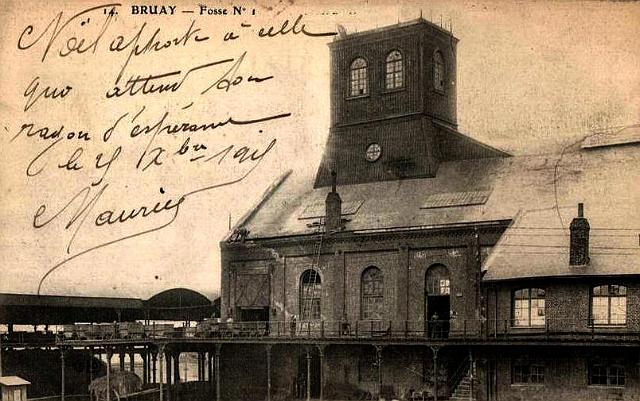 14. BRUAY — Fosse N° 1
Noël apporte à celle
qui attend son
rayon d'espérance
le 25 Xbre 1915
Maurice